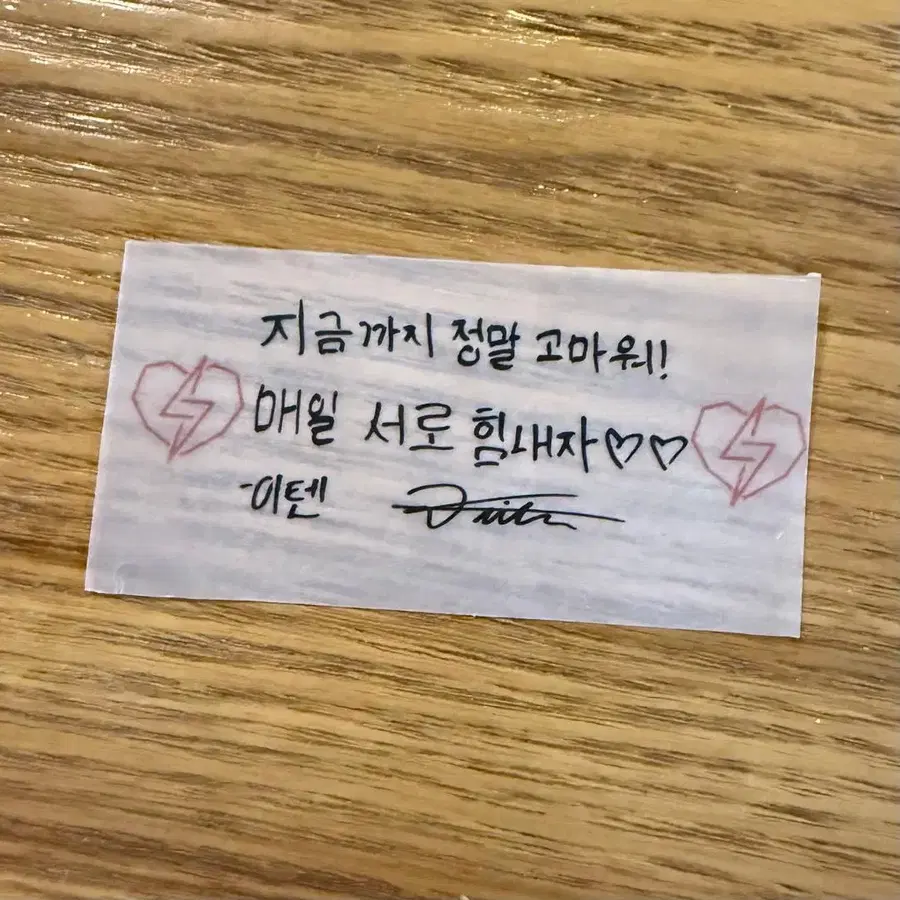 지금까지 정말 고마워!
매일 서로 힘내자♡♡
-이텐